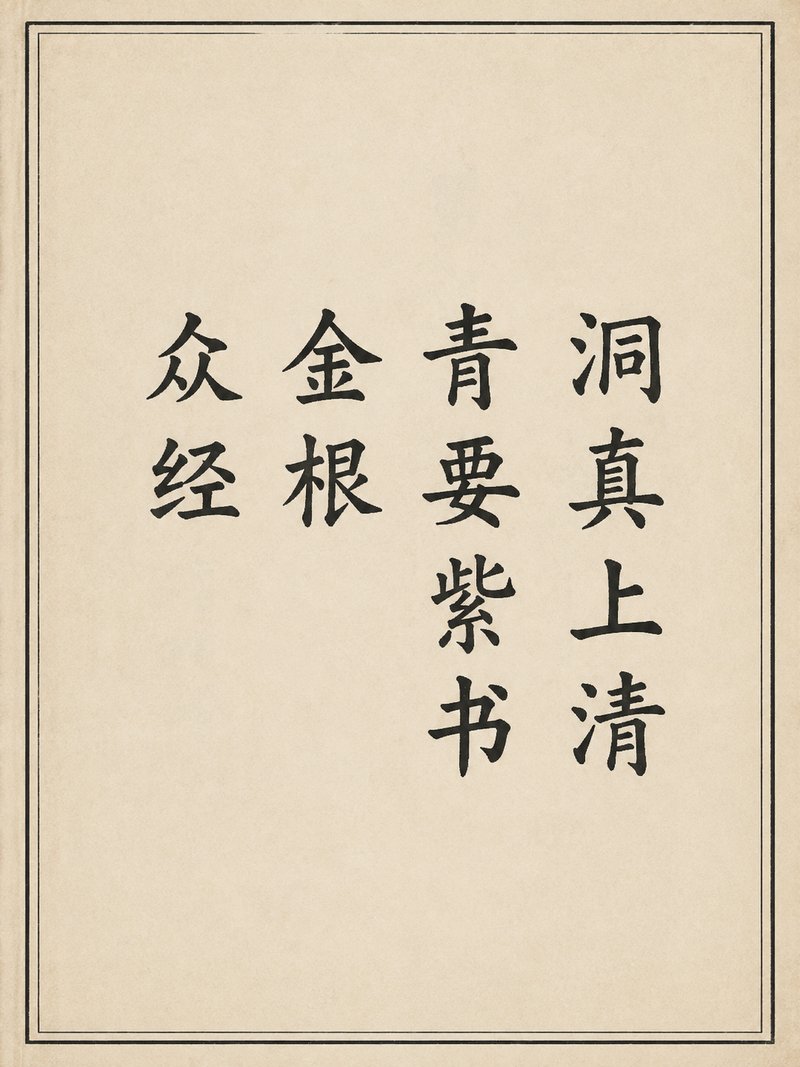 洞真上清
青要紫书
金根
众经